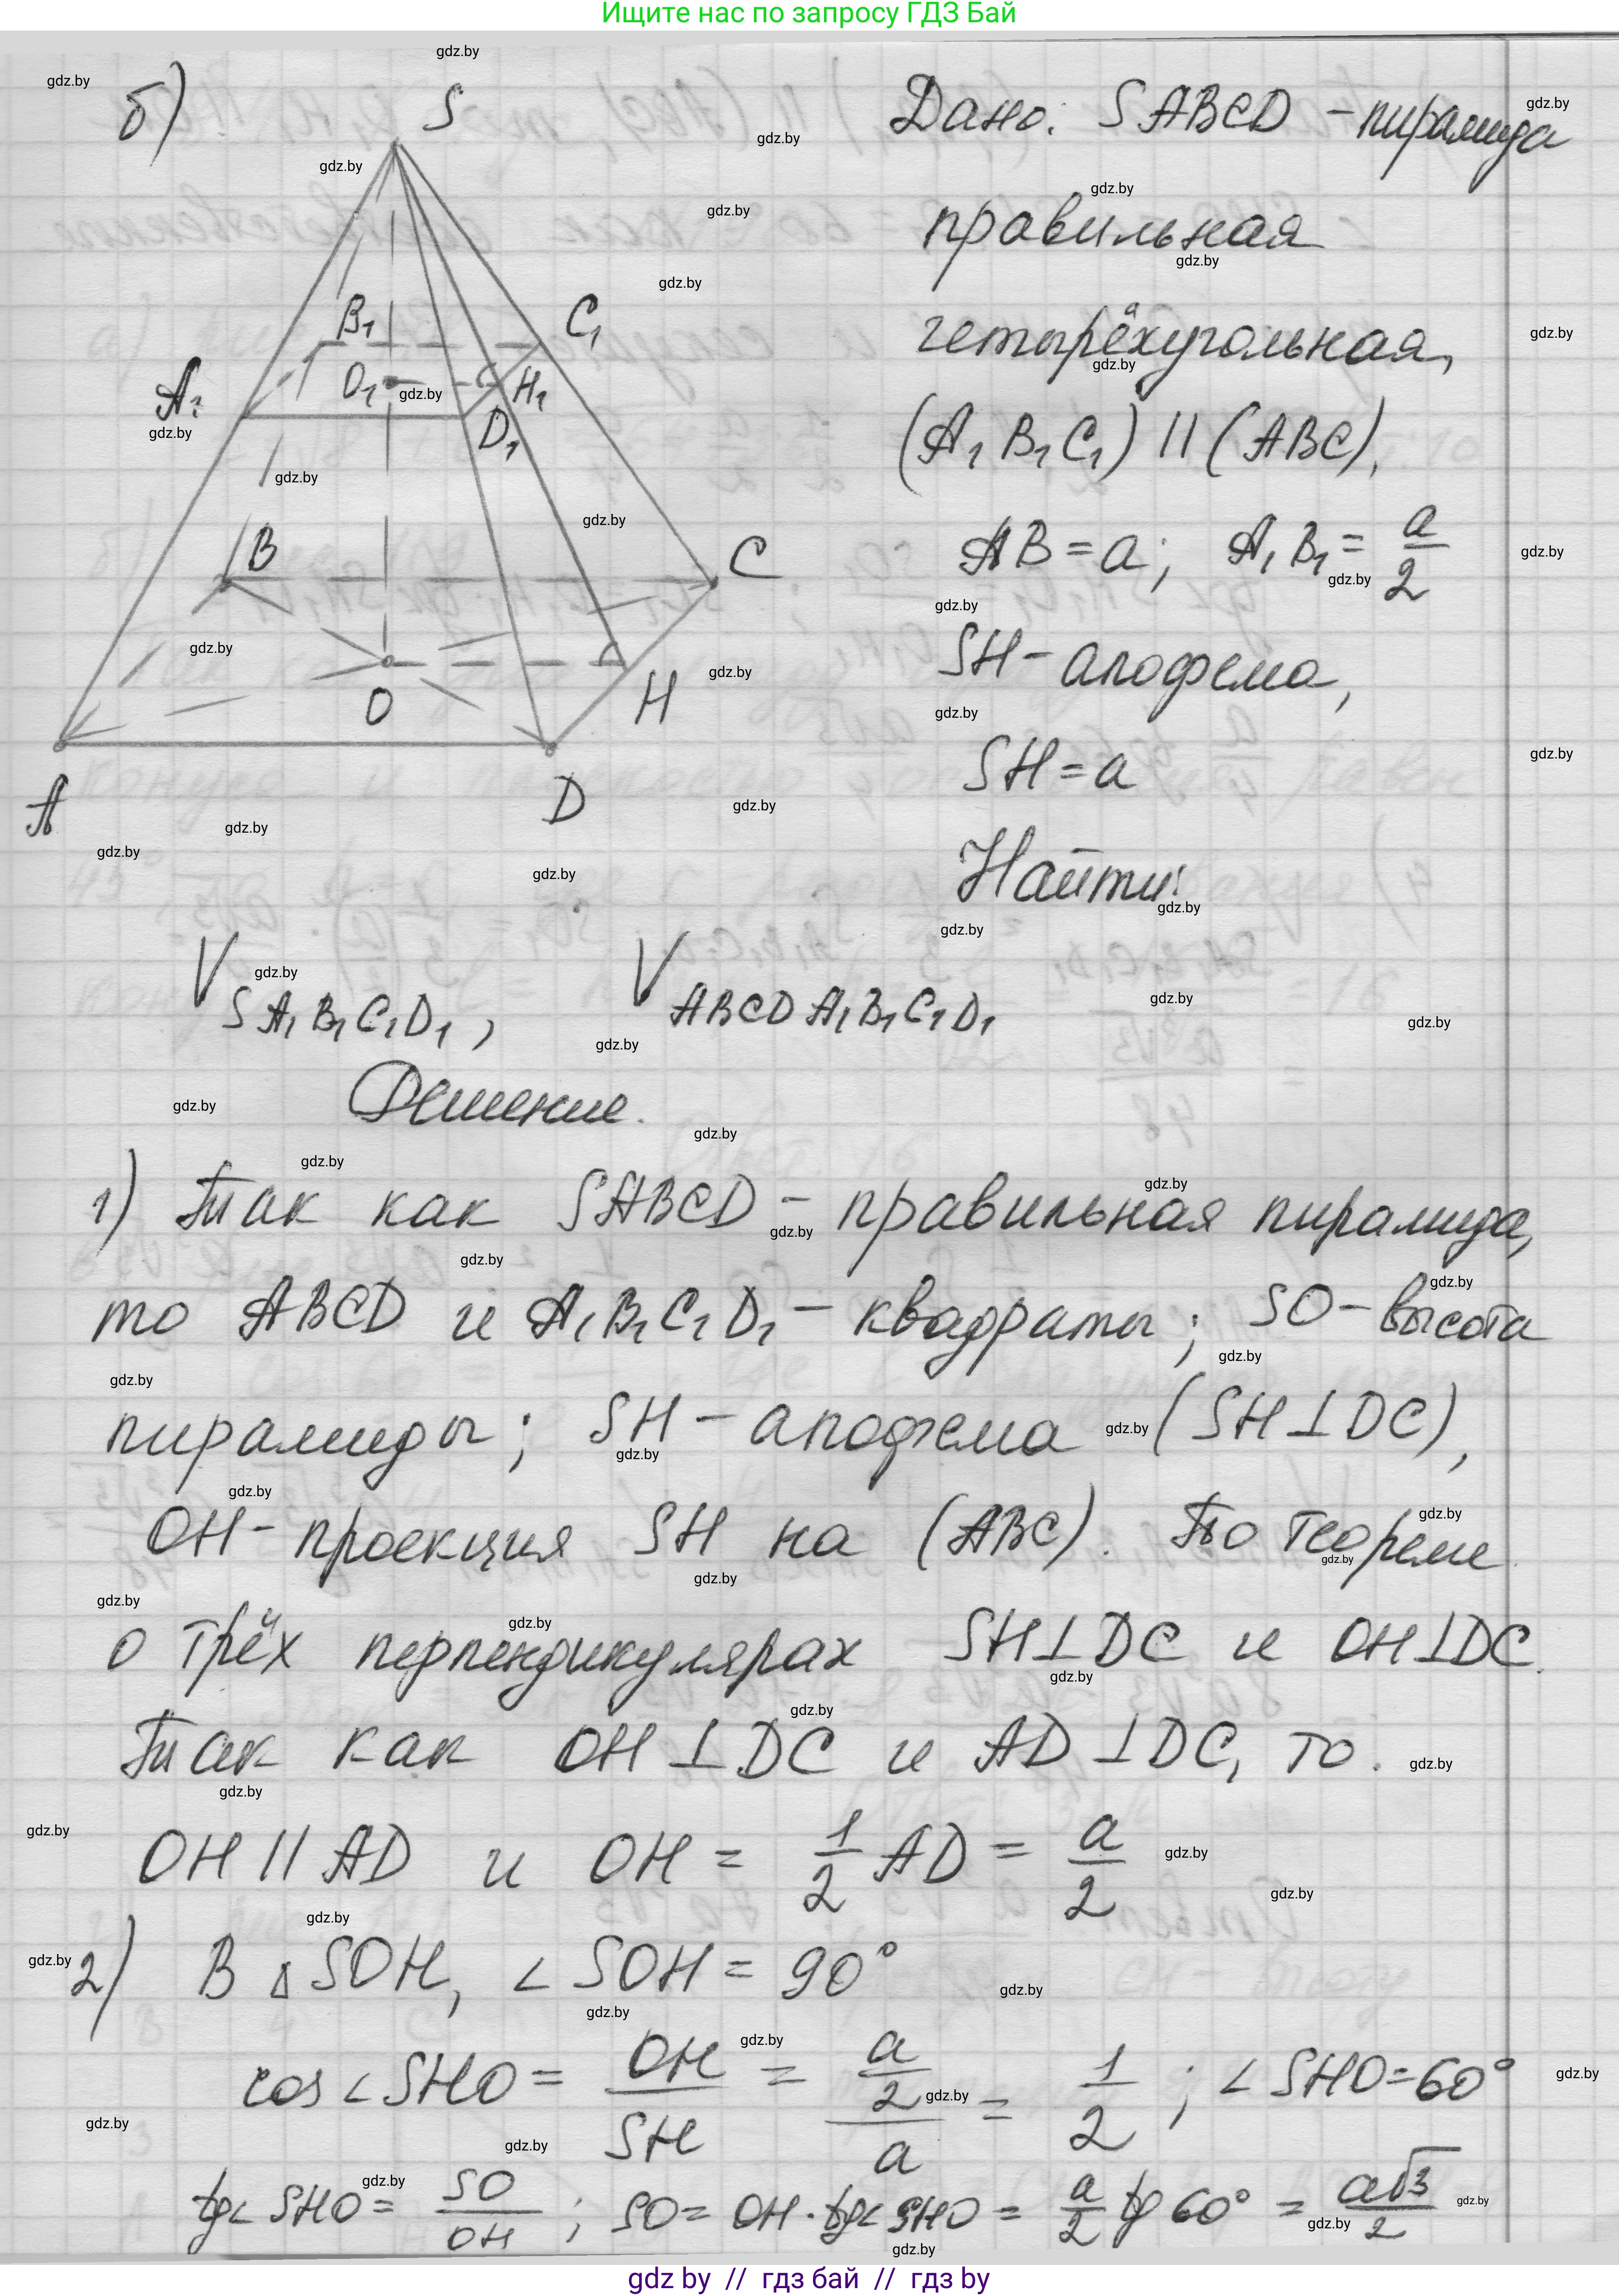 Ищите нас по запросу ГДЗ Бай
б)
S
Дано: SABCD - пирамида
правильная
четырёхугольная,
(A₁B₁C₁) || (ABC),
AB = a; A₁B₁ = a/2
SH - апофема,
SH = a
Найти:
B₁
C₁
A₁
O₁
H₁
D₁
B
C
O
H
A
D
V SA₁B₁C₁D₁, V ABCDA₁B₁C₁D₁
Решение.
1) Так как SABCD - правильная пирамида,
то ABCD и A₁B₁C₁D₁ - квадраты; SO - высота
пирамиды; SH - апофема (SH⊥DC),
OH - проекция SH на (ABC). По теореме
о трёх перпендикулярах SH⊥DC и OH⊥DC.
Так как OH⊥DC и AD⊥DC, то.
OH || AD и OH = 1/2 AD = a/2
2) В ∆SOH, ∠SOH = 90°
cos∠SHO = OH/SH = (a/2)/a = 1/2; ∠SHO = 60°
tg∠SHO = SO/OH; SO = OH·tg∠SHO = a/2 tg 60° = a√3/2
gdz by // гдз бай // гдз by
gdz.by